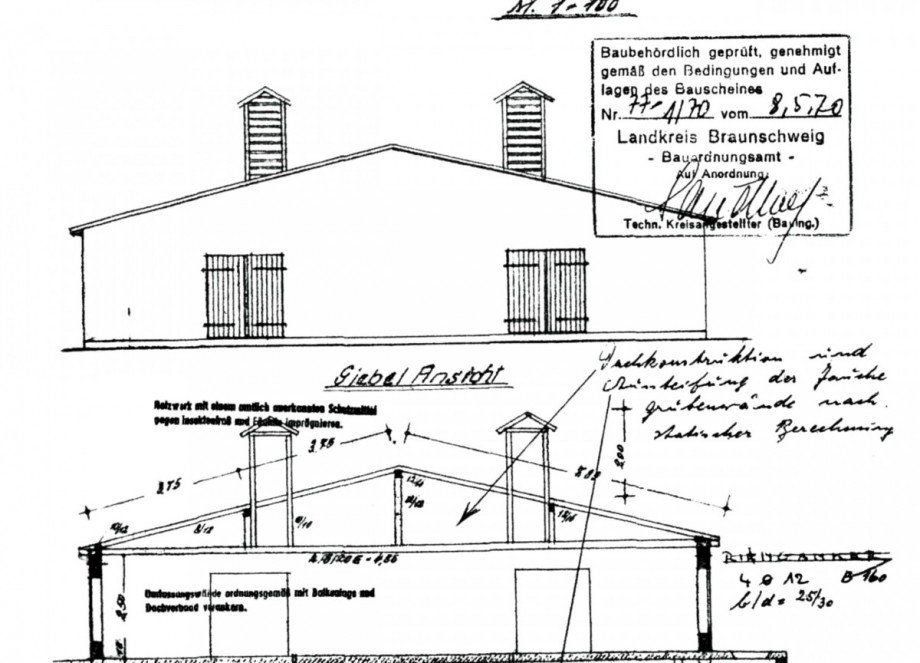 M. 1-100
Baubehördlich geprüft, genehmigt
gemäß den Bedingungen und Auf-
lagen des Bauscheines
Nr. 77-1/70 vom 8,5,70
Landkreis Braunschweig
- Bauordnungsamt -
Auf Anordnung:
Techn. Kreisangestellter (Bauing.)
Giebel Ansicht
Dachkonstruktion und
Aussteifung der Jauche
grubenwände nach
statischer Berechnung
Holzwerk mit einem amtlich anerkannten Schutzmittel
gegen Insektenfraß und Fäulnis imprägnieren.
3.75
3.75
8.02
200
10/12
8/12
RINGANKER
4 ⌀ 12 B 160
b/d = 25/30
Umfassungswände ordnungsgemäß mit Balkenlage und
Dachverband verankern.
2,50